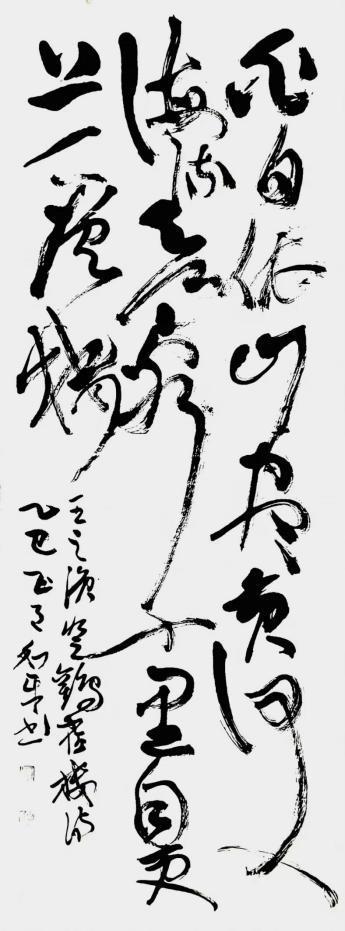 白日依山尽黄河入
海流欲穷千里目更
上一层楼
王之涣登鹳雀楼诗
乙巳正月